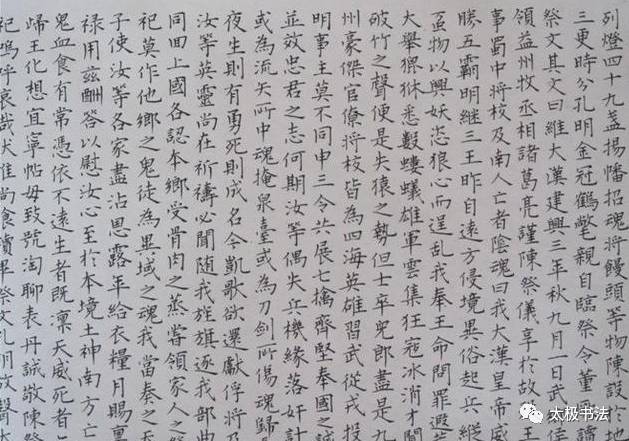 列燈四十九盞揚幡招魂將饅頭等物陳設於地
三更時分孔明金冠鶴氅親自臨祭令董厥
祭文其文曰維大漢建興三年秋九月一日武
領益州牧丞相諸葛亮謹陳祭儀享於故
事蜀中將校及南人亡者陰魂曰我大漢皇帝威
勝五霸明继三王昨自遠方侵境異俗起兵縱
蠆物以興妖恣狼心而逞亂我奉王命問罪遐
大舉貔貅悉數螻蟻雄軍雲集狂寇冰消才聞
破竹之聲便是失猿之勢但士卒兒郎盡是九
州豪傑官僚將校皆為四海英雄習武從戎投
明事主莫不同申三令共展七擒齊堅奉國之誠
並效忠君之志何期汝等偶失兵機緣落奸計
或為流矢所中魂掩泉臺或為刀劍所傷魄歸
夜生則有勇死則成名今凱歌欲還獻俘將及
汝等英靈尚在祈禱必聞随我旌旗逐我部曲
同回上國各認本鄉受骨肉之蒸嘗領家人之
祀莫作他鄉之鬼徒為異域之魂我當奏之天
子使汝等各家盡沾恩露年給衣糧月賜廩
禄用兹酬答以慰汝心至於本境土神南方亡
鬼血食有常憑依不遠生者既凜天威死者
歸王化想宜寧帖毋致號淘聊表丹誠敬陳祭
祀嗚呼哀哉伏惟尚食讀畢祭文孔明放聲大
太极书法